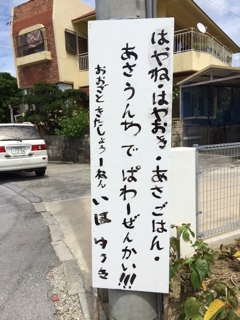 はやね・はやおき・あさごはん・
あさうんちでぱわーぜんかい!!!
おおざときたしょう一ねん いほ ゆうき